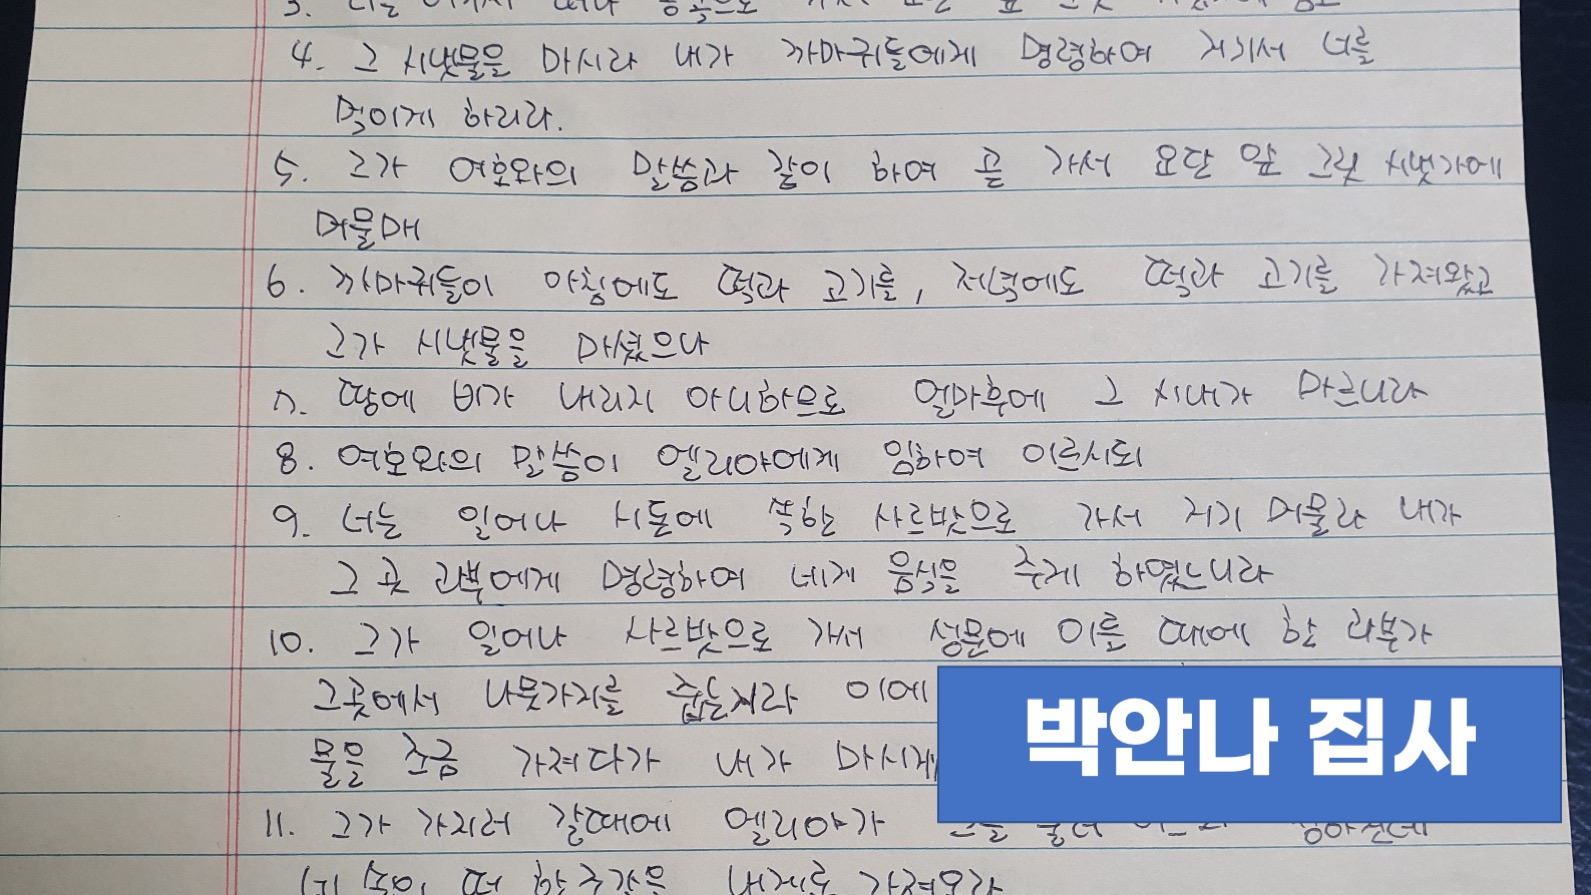 3. 너는
4. 그 시냇물을 마시라 내가 까마귀들에게 명령하여 저기서 너를
먹이게 하리라.
5. 그가 여호와의 말씀과 같이 하여 곧 가서 요단 앞 그릿 시냇가에
머물매
6. 까마귀들이 아침에도 떡과 고기를, 저녁에도 떡과 고기를 가져왔고
그가 시냇물을 마셨으나
7. 땅에 비가 내리지 아니하므로 얼마후에 그 시내가 마르니라
8. 여호와의 말씀이 엘리야에게 임하여 이르시되
9. 너는 일어나 시돈에 속한 사르밧으로 가서 저기 머물라 내가
그 곳 과부에게 명령하여 네게 음식을 주게 하였느니라
10. 그가 일어나 사르밧으로 가서 성문에 이를 때에 한 과부가
그곳에서 나뭇가지를 줍는지라 이에
물을 조금 가져다가 내가 마시게
박안나 집사
11. 그가 가지러 갈때에 엘리야가
내게로 가져오라